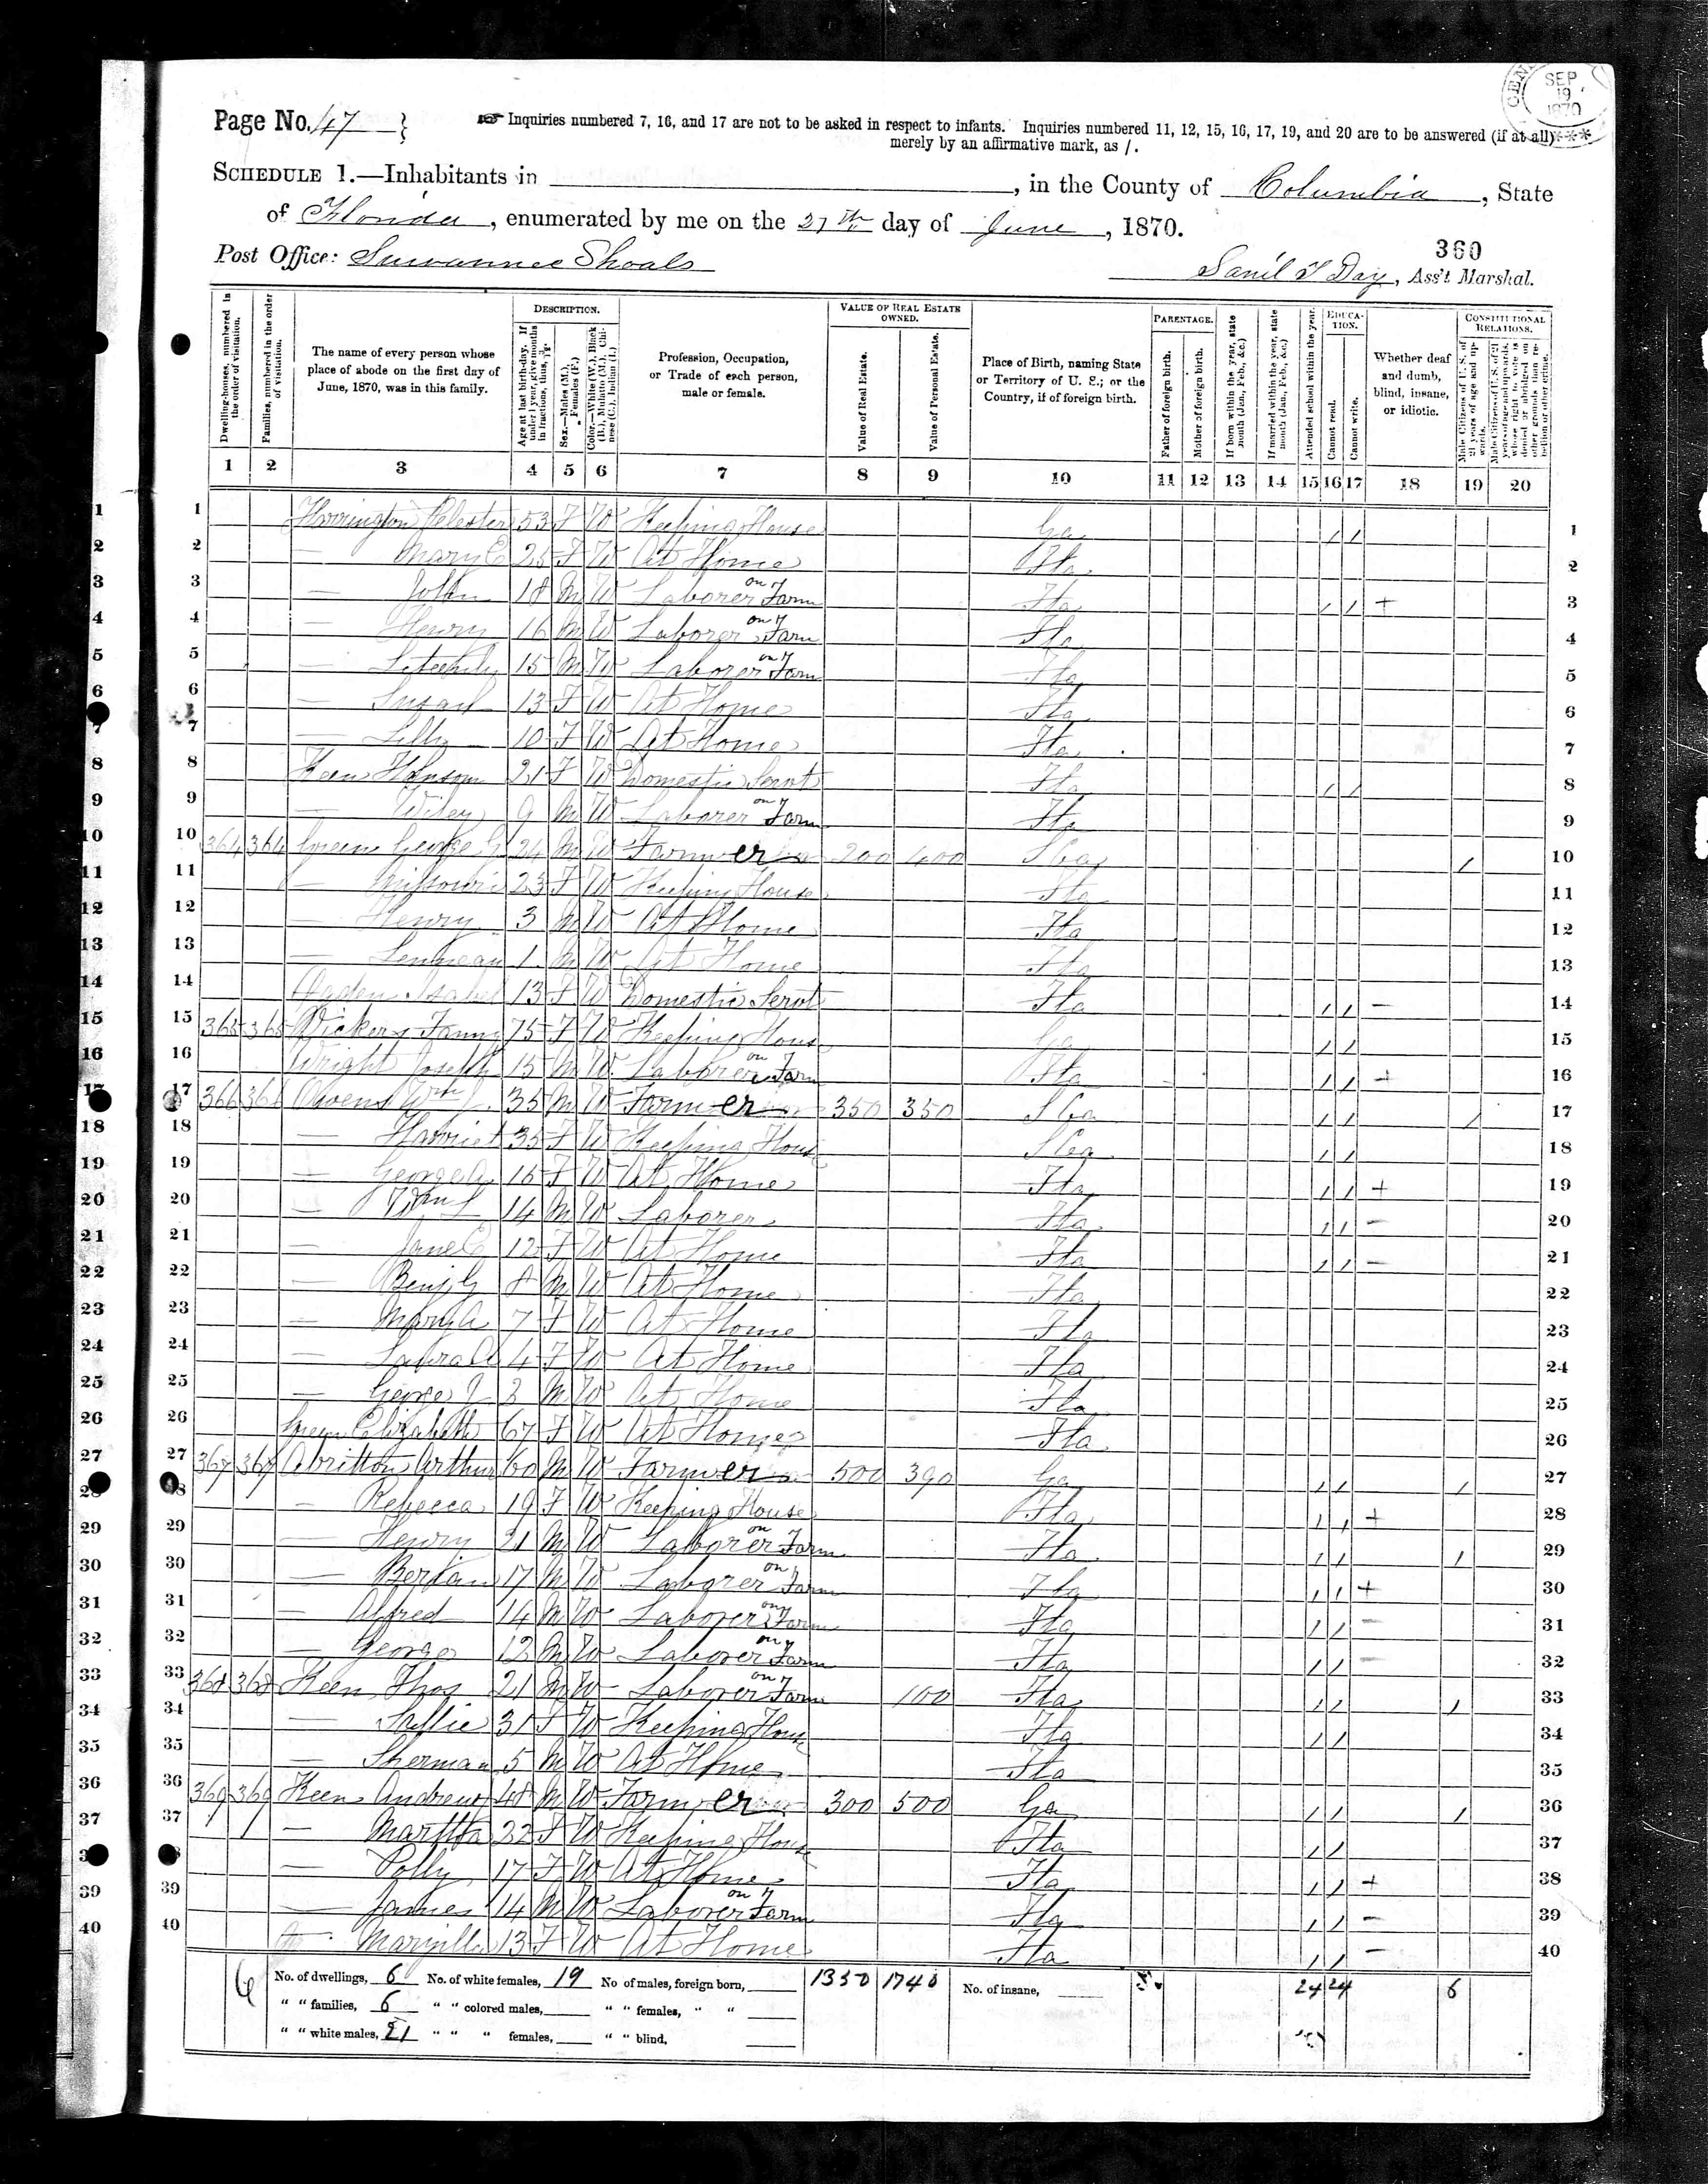 CEN
SEP
19
1870
***
Page No. 47 }
Inquiries numbered 7, 16, and 17 are not to be asked in respect to infants. Inquiries numbered 11, 12, 15, 16, 17, 19, and 20 are to be answered (if at all)
merely by an affirmative mark, as /.
SCHEDULE 1.—Inhabitants in , in the County of Columbia, State
of Florida, enumerated by me on the 27th day of June, 1870.
360
Post Office: Suwannee Shoals
Day, Ass't Marshal.
Dwelling-houses, numbered in the order of visitation.
Families, numbered in the order of visitation.
The name of every person whose place of abode on the first day of June, 1870, was in this family.
DESCRIPTION.
Age at last birth-day. If under 1 year, give months in fractions, thus,
Sex.—Males (M.), Females (F.)
Color.—White (W.), Black (B.), Mulatto (M.), Chinese (C.), Indian (I.)
Profession, Occupation, or Trade of each person, male or female.
VALUE OF REAL ESTATE OWNED.
Value of Real Estate.
Value of Personal Estate.
Place of Birth, naming State or Territory of U. S.; or the Country, if of foreign birth.
PARENTAGE.
Father of foreign birth.
Mother of foreign birth.
If born within the year, state month (Jan., Feb., &c.)
If married within the year, state month (Jan., Feb., &c.)
EDUCATION.
Attended school within the year.
Cannot read.
Cannot write.
Whether deaf and dumb, blind, insane, or idiotic.
CONSTITUTIONAL RELATIONS.
Male Citizens of U. S. of 21 years of age and upwards.
Male Citizens of U. S. of 21 years of age and upwards, whose right to vote is denied or abridged on other grounds than rebellion or other crime.
1 2 3 4 5 6 7 8 9 10 11 12 13 14 15 16 17 18 19 20
1 Harrington 53 F W Keeping House Ga / / 1
2 — Mary E 25 F W At Home Fla 2
3 — John 18 M W Laborer on Farm Fla / / + 3
4 — Henry 16 M W Laborer on Farm Fla 4
5 — 15 M W Laborer on Farm Fla 5
6 — Susan 13 F W At Home Fla 6
7 — Lilly 10 F W At Home Fla 7
8 Keen 21 F W Domestic Servt Fla / / 8
9 — Wiley 9 M W Laborer on Farm Fla 9
10 364 364 Green George G 24 M W Farmer 200 400 S Ca / 10
11 — Missouri 23 F W Keeping House Fla 11
12 — Henry 3 M W At Home Fla 12
13 — 1 M W At Home Fla 13
14 Ogden Isabel 13 F W Domestic Servt Fla / / – 14
15 365 365 Vickery Fanny 75 F W Keeping House Ga / / 15
16 Wright Joseph 15 M W Laborer on Farm Fla / / + 16
17 366 366 Owens Wm J 35 M W Farmer 350 350 S Ca / / / 17
18 — Harriet 35 F W Keeping House S Ca / / 18
19 — George A 16 F W At Home Fla / / + 19
20 — Wm L 14 M W Laborer Fla / / – 20
21 — Jane E 12 F W At Home Fla / / – 21
22 — Benj G 8 M W At Home Fla 22
23 — Mary A 7 F W At Home Fla 23
24 — 4 F W At Home Fla 24
25 — George J 3 M W At Home Fla 25
26 Green Elizabeth 67 F W At Home Fla 26
27 367 367 Abritton Arthur 60 M W Farmer 500 390 Ga / / / 27
28 — Rebecca 19 F W Keeping House Fla / / + 28
29 — Henry 21 M W Laborer on Farm Fla / / / 29
30 — 17 M W Laborer on Farm Fla / / + 30
31 — Alfred 14 M W Laborer on Farm Fla / / – 31
32 — George 12 M W Laborer on Farm Fla / / – 32
33 368 368 Keen Thos 21 M W Laborer on Farm 100 Fla / / / 33
34 — 31 F W Keeping House Fla / / 34
35 — Sherman 5 M W At Home Fla 35
36 369 369 Keen Andrew 48 M W Farmer 300 500 Ga / / / 36
37 — Martha 22 F W Keeping House Fla / / 37
38 — Polly 17 F W At Home Fla / / + 38
39 — James 14 M W Laborer on Farm Fla / / – 39
40 — 13 F W At Home Fla / / – 40
No. of dwellings, 6 No. of white females, 19 No of males, foreign born, 1350 1740 No. of insane, 24 24 6
" " families, 6 " " colored males, " " females, " "
" " white males, 21 " " " females, " " blind,